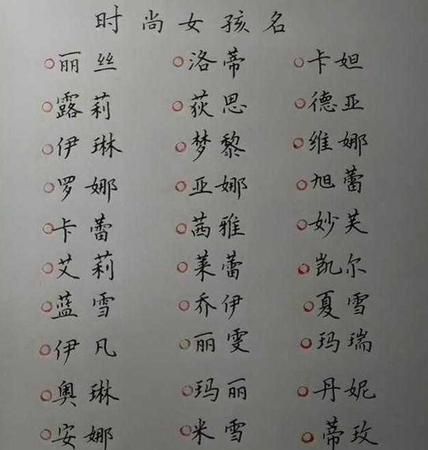 时尚女孩名
丽丝 洛蒂 卡妲
露莉 荻思 德亚
伊琳 梦黎 维娜
罗娜 亚娜 旭蕾
卡蕾 茜雅 妙芙
艾莉 莱蕾 凯尔
蓝雪 乔伊 夏雪
伊凡 丽雯 玛瑞
奥琳 玛丽 丹妮
安娜 米雪 蒂玫